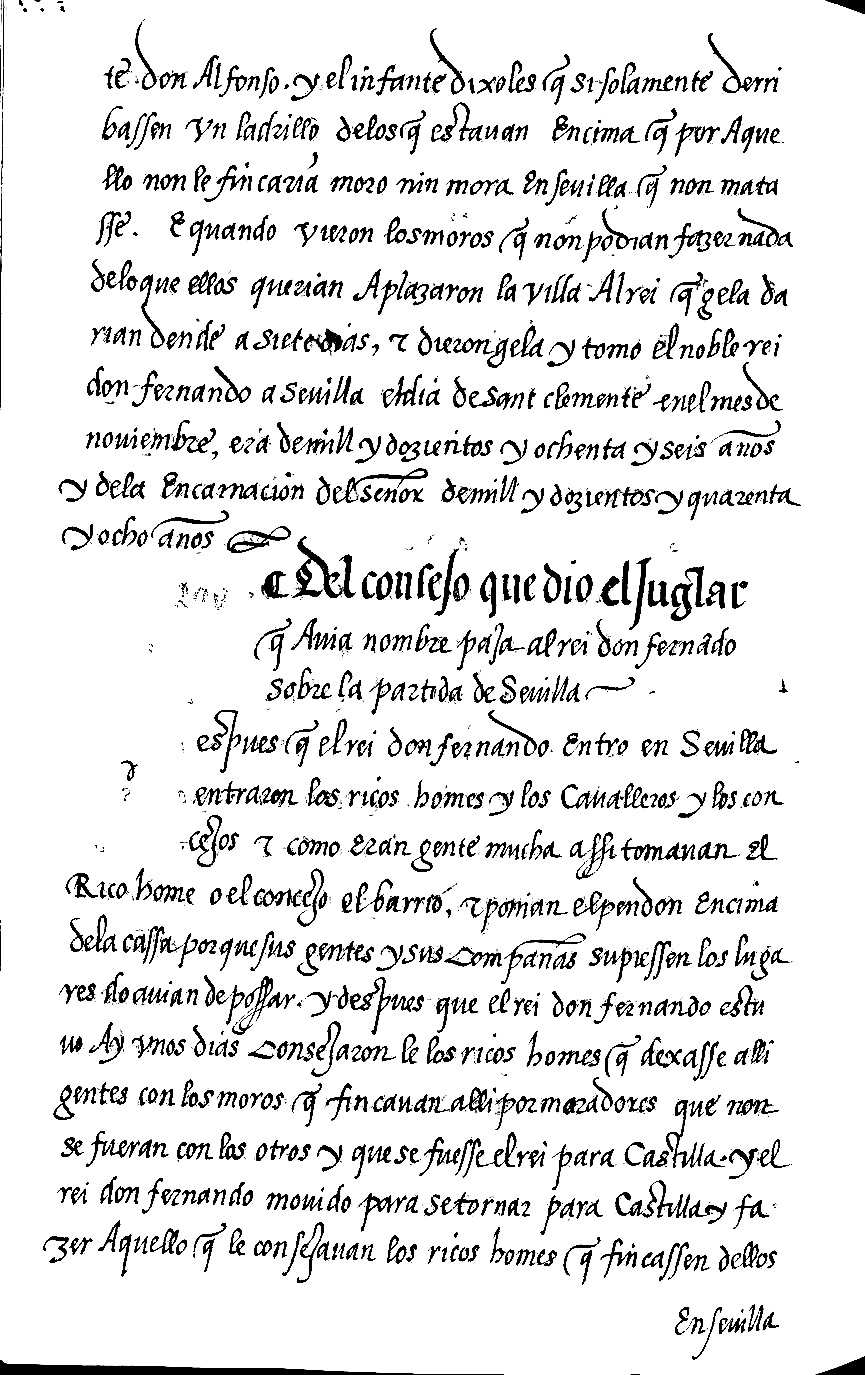 te don Alfonso. y el infante dixoles q̃ si solamente derri
bassen vn ladrillo delos q̃ estauan Encima q̃ por Aque
llo non le fincaria moro nin mora En seuilla q̃ non mata
sse. E quando vieron los moros q̃ non podian fazer nada
delo que ellos querian Aplazaron la villa Al rei q̃ gela da
rian dende a siete dias, τ dierongela y tomo el noble rei
don fernando a Seuilla el dia de Sant clemente en el mes de
nouiembre, era de mill y dozientos y ochenta y seis años
y dela Encarnaçion del señor de mill y dozientos y quarenta
y ocho años
¶ Del consejo que dio el Juglar
q̃ Auia nombre paja al rei don fernãdo
sobre la partida de Seuilla
espues q̃ el rei don fernando Entro en Seuilla
entraron los ricos homes y los Caualleros y los con
cejos τ como eran gente mucha assi tomauan El
Rico home o el concejo el barrio, τ ponian el pendon Encima
dela cassa porque sus gentes y sus compañas supiessen los luga
res do auian de possar. y despues que el rei don fernando estu
uo Ay vnos dias consejaron le los ricos homes q̃ dexasse alli
gentes con los moros q̃ fincauan alli por moradores que non
se fueran con los otros y que se fuesse el rei para Castilla. y el
rei don fernando mouido para se tornar para Castilla y fa
zer Aquello q̃ le consejauan los ricos homes q̃ fincassen dellos
En seuilla